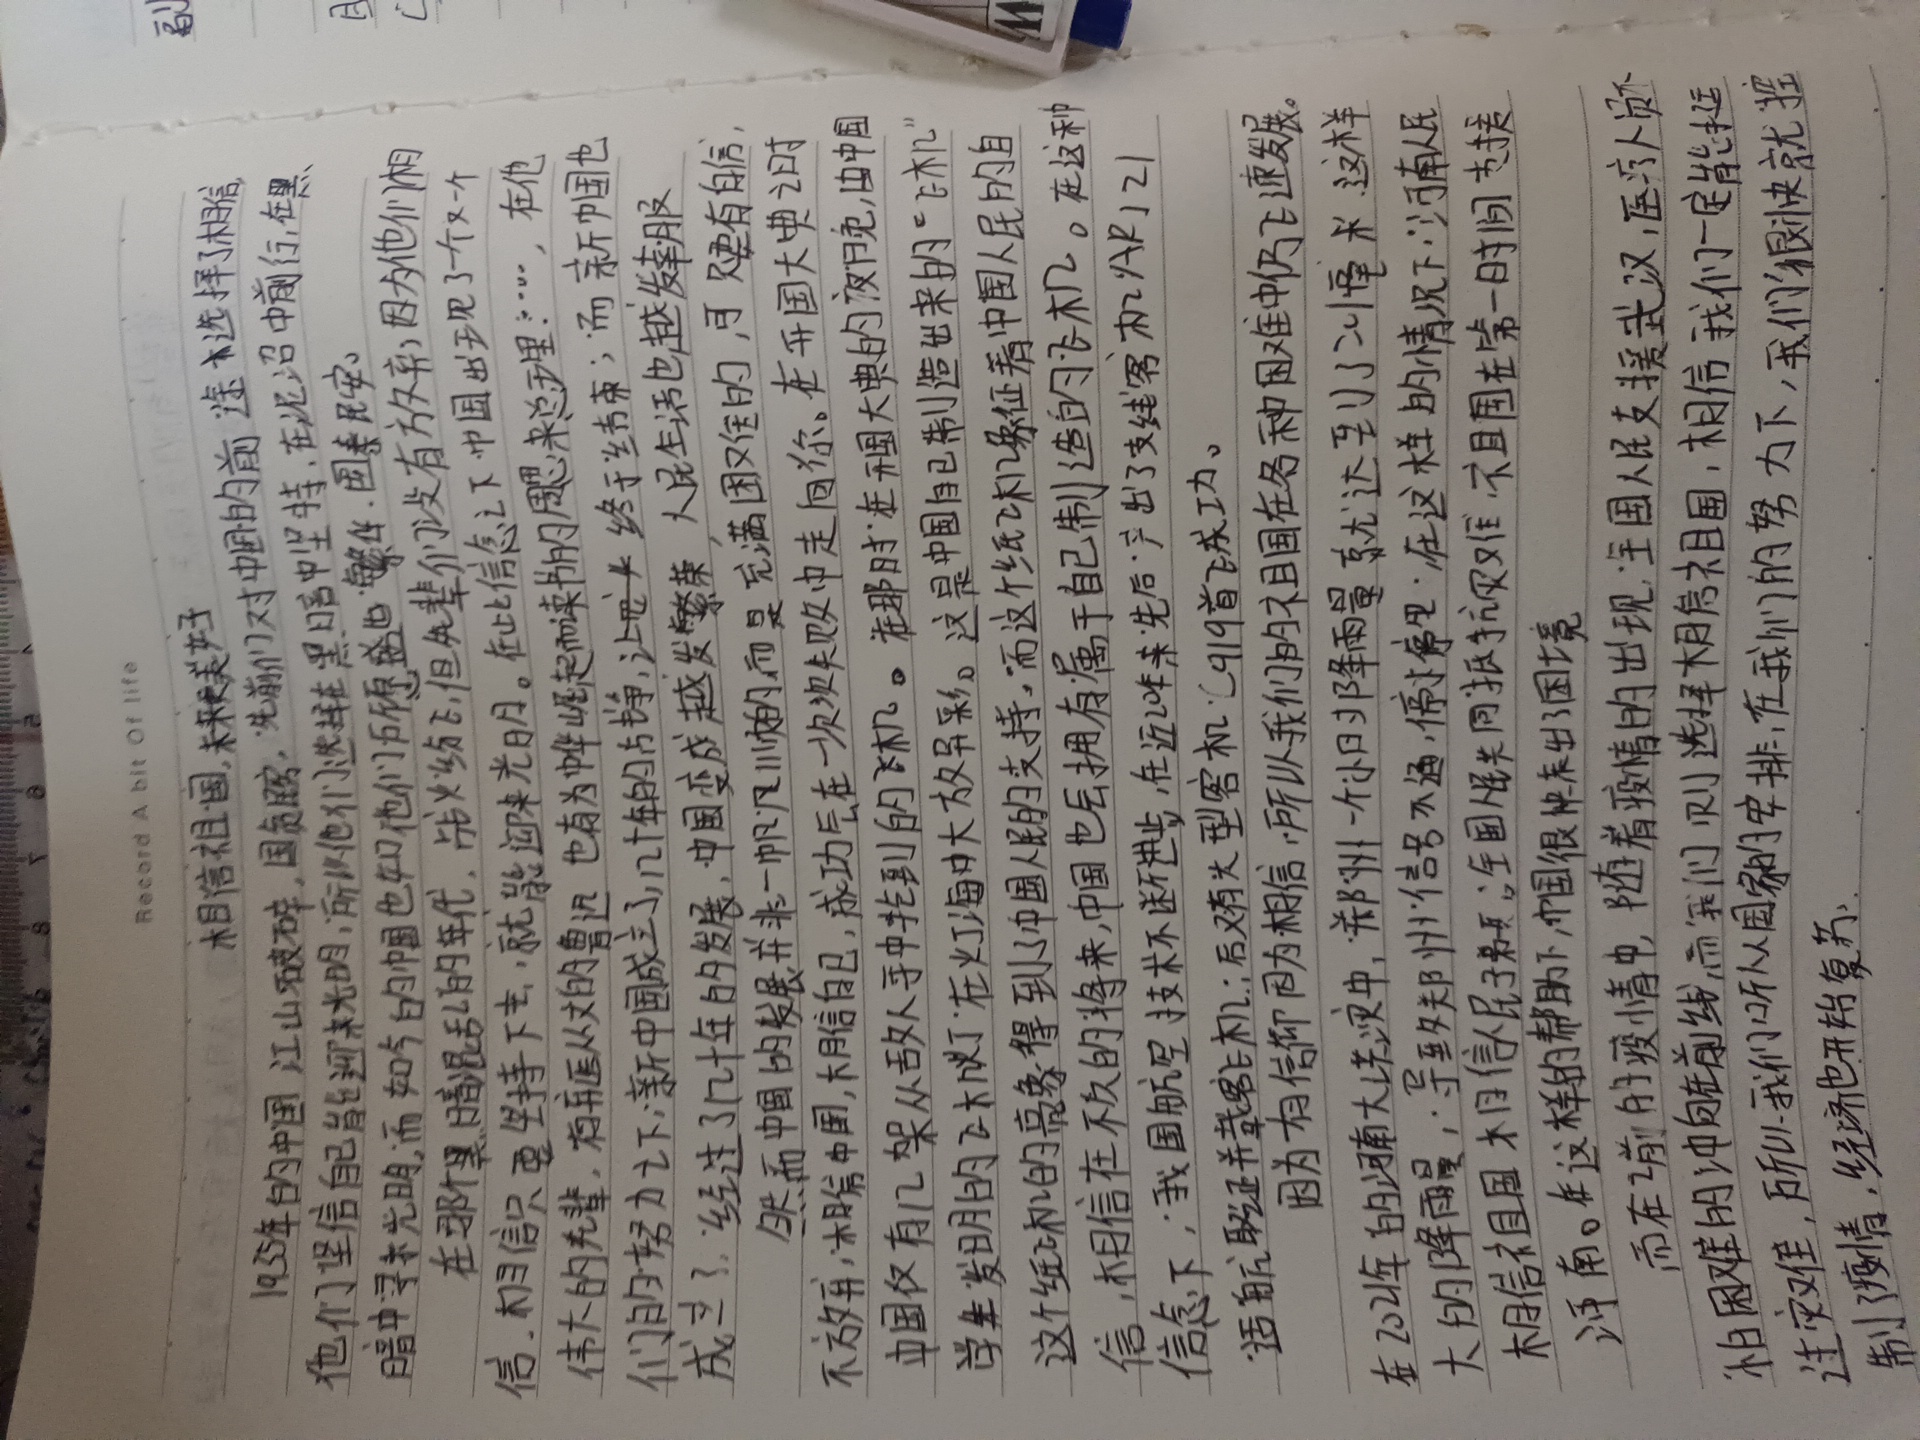 Record A bit Of life
相信祖国,未来更美好
1935年的中国 江山破碎,国贫民弱,先辈们对中国的前途 选择了相信,
他们坚信自己能迎来光明,所以他们选择在黑暗中坚持,在泥沼中前行,在黑
暗中寻求光明,而如今的中国也如他们所愿 盛世繁华.国泰民安。
在那个黑暗混乱的年代,战火纷飞,但先辈们没有放弃,因为他们相
信.相信只要坚持下去,就能迎来光明。在此信念之下中国出现了一个又一个
伟大的先辈,有弃医从文的鲁迅 也有为中华崛起而读书的周恩来总理……,在他
们的努力之下,新中国成立了,几十年的战争,让 终于结束;而新中国也
成立了,经过了几十年的发展,中国变成越发繁荣 人民生活也越发幸服
然而中国的发展并非一帆风顺的,而是充满困难的,可只要有自信,
不放弃,相信中国,相信自己,成功会在一次次失败中走向你。在开国大典之时
中国仅有几架从敌人手中抢到的飞机。在那时,在开国大典的夜晚,由中国
学生发明的飞机灯在灯海中大放异彩。这是中国自己制造出来的“飞机”
这个纸飞机的高象得到了中国人民的支持,而这个纸飞机象征着中国人民的自
信,相信在不久的将来,中国也会拥有属于自己制造的飞机。在这种
信念下,我国航空技术不断进步,在近20年来先后产出了支线客机ARJ21
适航取证并载客飞机;后又有大型客机C919首飞成功。
因为有信仰因为相信,所以我们的祖国在各种困难中仍飞速发展。
在2021年的河南大洪灾中,郑州一个小时降雨量就达到了201毫米.这样
大的降雨量,导致郑州信号不通,停水停电.在这样的情况下,河南人民
相信祖国 相信人民子弟兵;全国人民共同抵抗灾难,祖国在第一时间支援
河南。在这样的帮助下,中国很快走出了困境
而在2前的疫情中,随着疫情的出现,全国人民支援武汉,医疗人员不
怕困难的冲向在前线,而我们则选择相信祖国,相信我们一定能挺
过灾难,所以我们听从国家的安排,在我们的努力下,我们很快就控
制了疫情,经济也开始复苏.